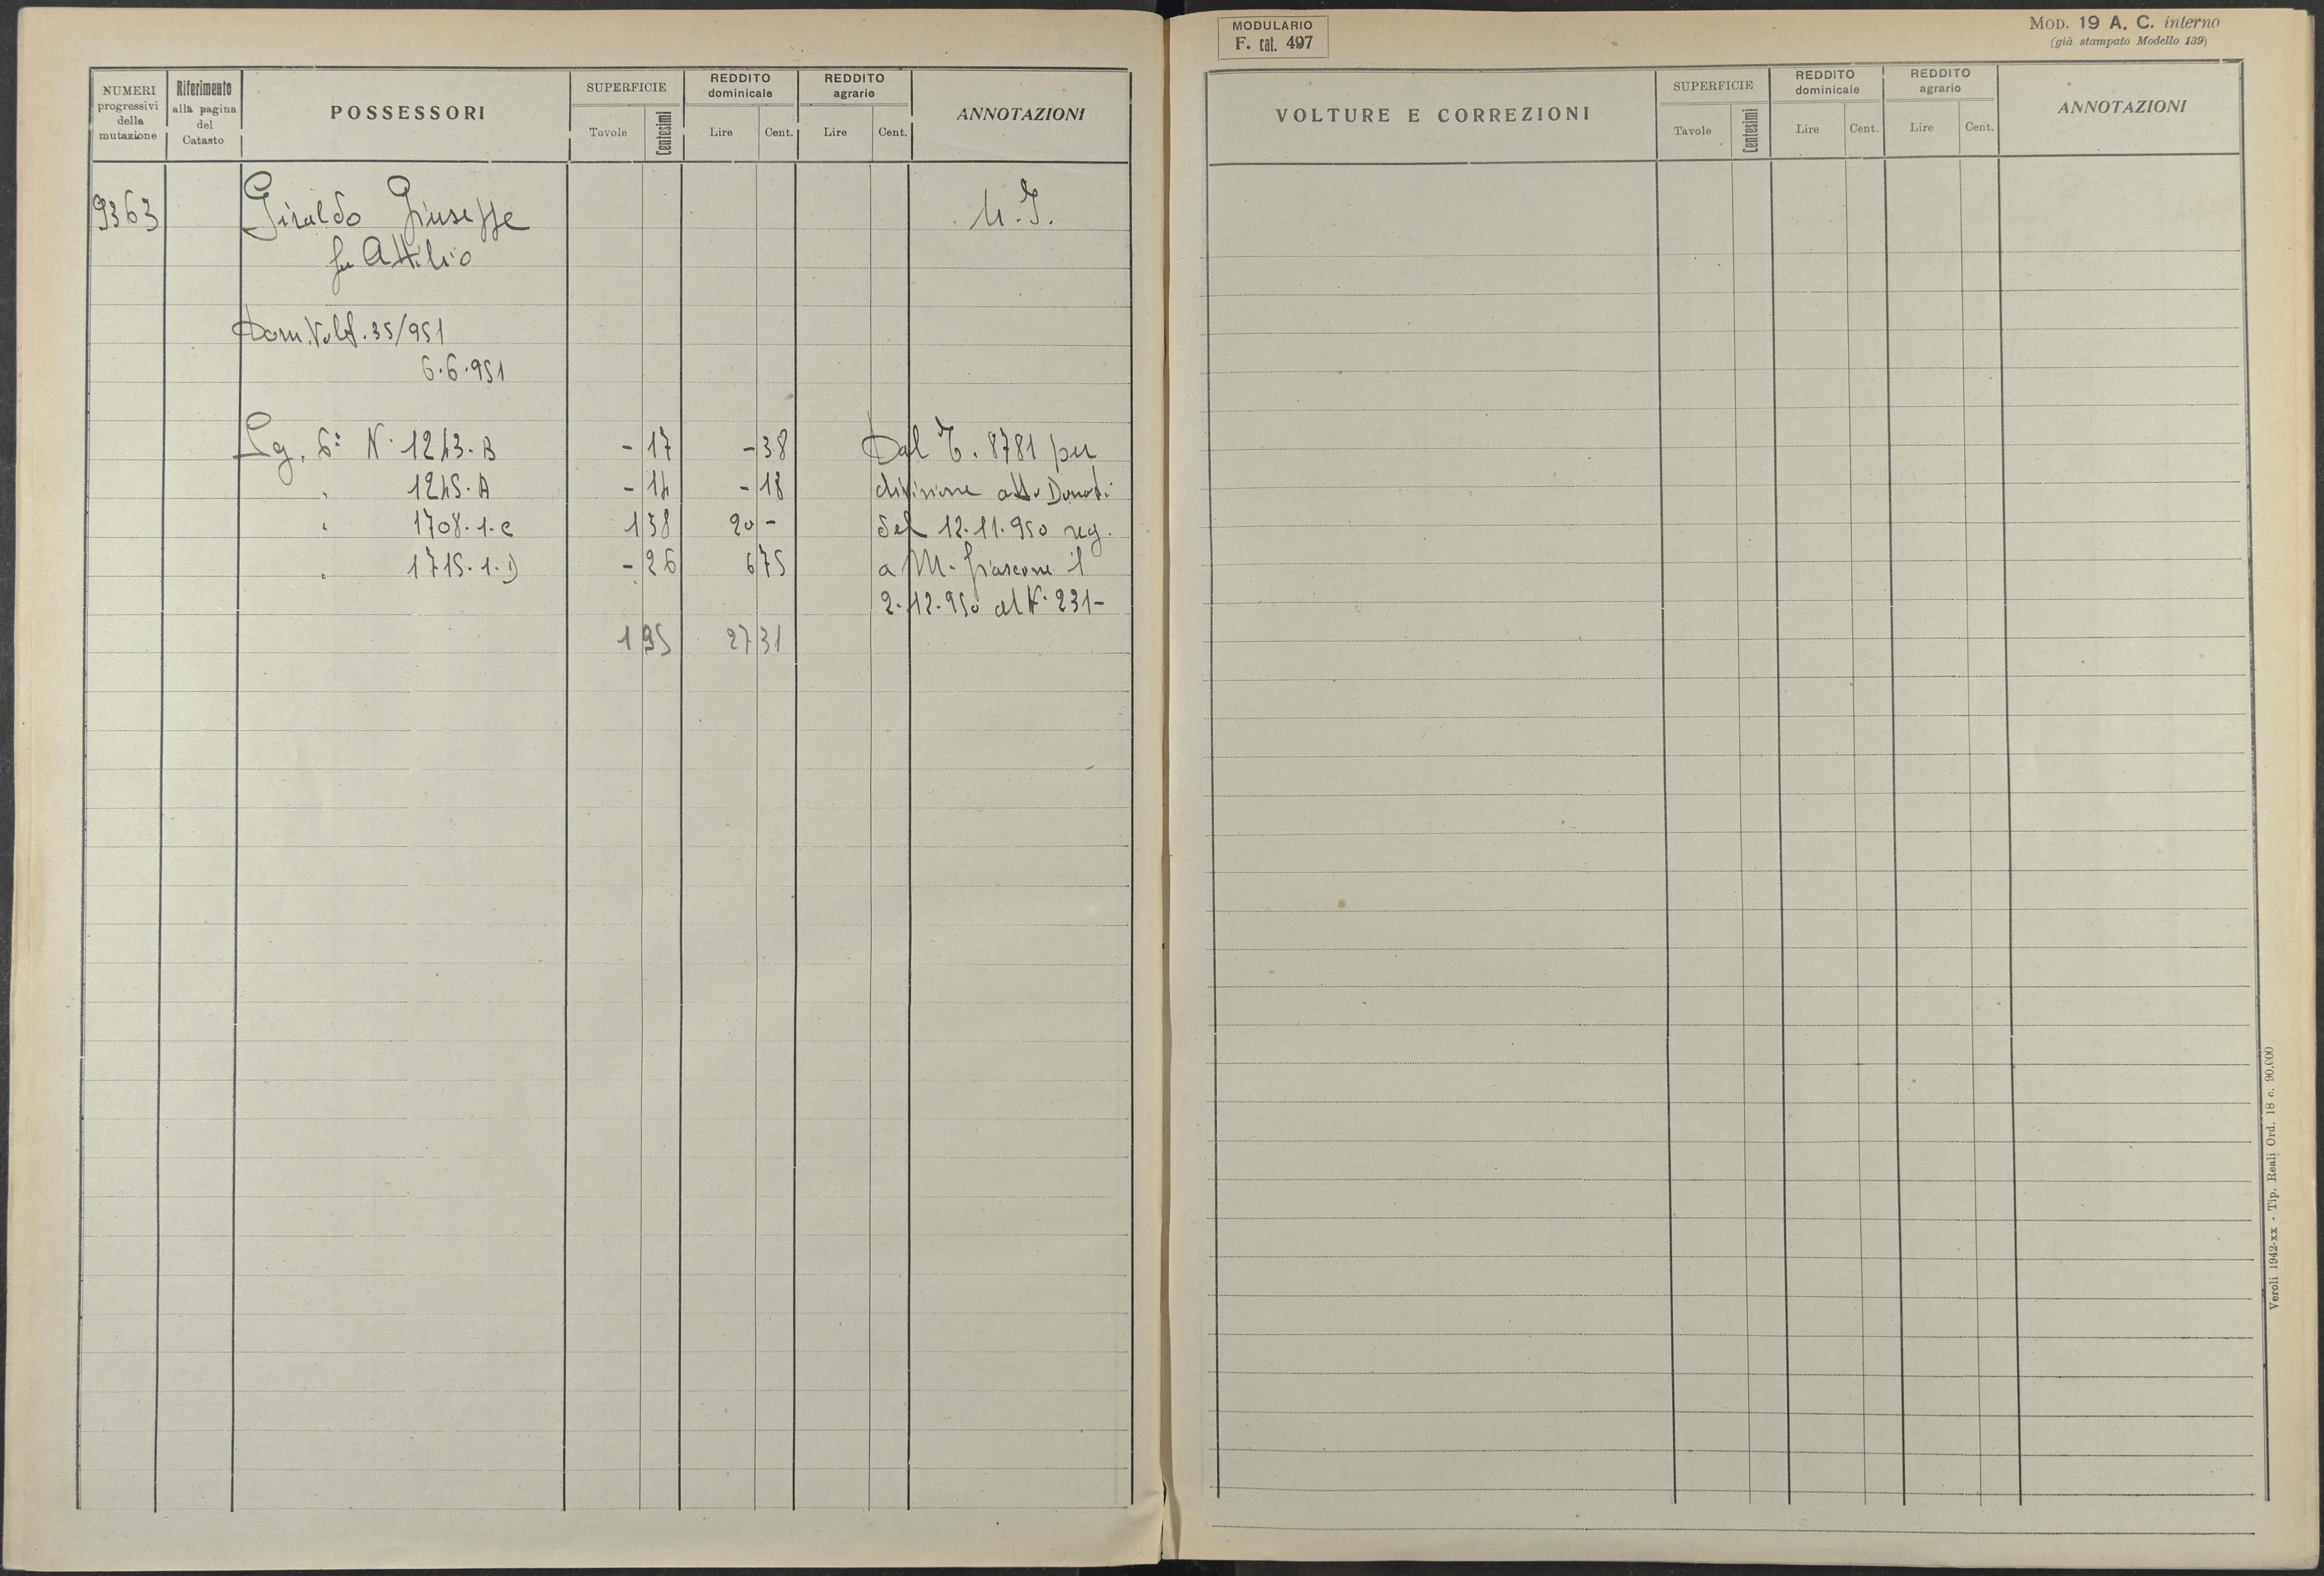 NUMERI progressivi della mutazione
Riferimento alla pagina del Catasto
POSSESSORI
SUPERFICIE
Tavole
Centesimi
REDDITO dominicale
Lire
Cent.
REDDITO agrario
Lire
Cent.
ANNOTAZIONI
9363 Giraldo Giuseppe
fu Attilio
Dom. Volt. 35/951
6.6.951
Sg. 6ª N. 1243. B - 17 - 38 Dal T. 8781 per
" 1245. A - 14 - 18 divisione atto Donati
" 1708. 1. C 1 38 20 - del 12.11.950 reg.
" 1715. 1. D - 26 6 75 a M.
2.12.950 al N. 231-
1 95 27 31
MODULARIO
F. cat. 497
MOD. 19 A. C. interno
(già stampato Modello 139)
VOLTURE E CORREZIONI
SUPERFICIE
Tavole
Centesimi
REDDITO dominicale
Lire
Cent.
REDDITO agrario
Lire
Cent.
ANNOTAZIONI
Veroli 1942-XX - Tip. Reali Ord. 18 c. 90.000